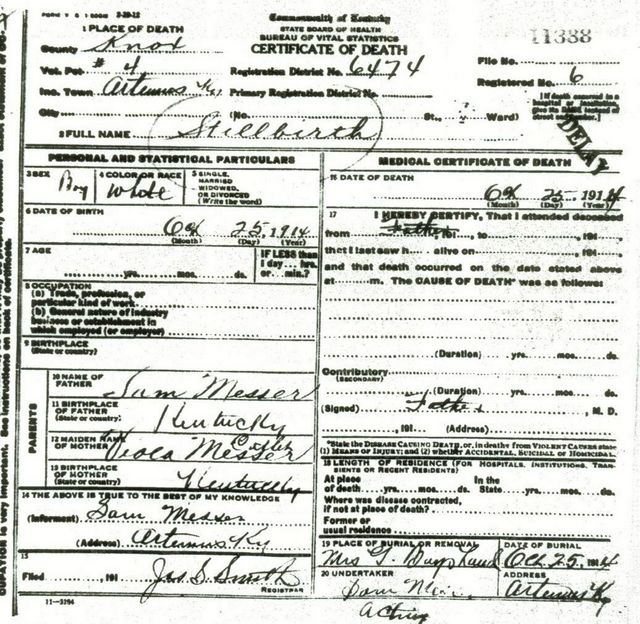 FORM V S 1 500M 3-29-12
Commonwealth of Kentucky
STATE BOARD OF HEALTH
BUREAU OF VITAL STATISTICS
CERTIFICATE OF DEATH
11388
1 PLACE OF DEATH
County Knox
Vot. Pct # 4
Inc. Town Artemus Ky
City
Registration District No. 6474
Primary Registration District No.
(No. St., Ward)
File No.
Registered No. 6
[If death occurred in a
hospital or institution,
give its NAME instead of
street and number.]
DELAY
2 FULL NAME Stillbirth
PERSONAL AND STATISTICAL PARTICULARS
3 SEX Boy
4 COLOR OR RACE White
5 SINGLE,
MARRIED
WIDOWED,
OR DIVORCED
(Write the word)
6 DATE OF BIRTH
Oct 25, 1914
(Month) (Day) (Year)
7 AGE
yrs. mos. ds.
IF LESS than
1 day... hrs.
or... min.?
8 OCCUPATION
(a) Trade, profession, or
particular kind of work
(b) General nature of industry
business or establishment in
which employed (or employer)
9 BIRTHPLACE
(State or country)
PARENTS
10 NAME OF
FATHER Sam Messer
11 BIRTHPLACE
OF FATHER
(State or country) Kentucky
12 MAIDEN NAME
OF MOTHER Viola Messer
13 BIRTHPLACE
OF MOTHER
(State or country) Kentucky
14 THE ABOVE IS TRUE TO THE BEST OF MY KNOWLEDGE
(Informant) Sam Messer
(Address) Artemus Ky
15
Filed 191 Jas S. Smith
REGISTRAR
11-3294
MEDICAL CERTIFICATE OF DEATH
16 DATE OF DEATH
Oct 25 1914
(Month) (Day) (Year)
17 I HEREBY CERTIFY, That I attended deceased
from Father, 191, to 191
that I last saw h alive on 191
and that death occurred on the date stated above
at m. The CAUSE OF DEATH* was as follows:
(Duration) yrs. mos. ds.
Contributory
(SECONDARY)
(Duration) yrs. mos. ds.
(Signed) Father, M. D.
191 (Address)
*State the DISEASE CAUSING DEATH, or, in deaths from VIOLENT CAUSES state
(1) MEANS OF INJURY; and (2) whether ACCIDENTAL, SUICIDAL OR HOMICIDAL.
18 LENGTH OF RESIDENCE (FOR HOSPITALS, INSTITUTIONS, TRAN-
SIENTS OR RECENT RESIDENTS)
At place In the
of death yrs. mos. ds. State yrs. mos. ds.
Where was disease contracted,
if not at place of death?
Former or
usual residence
19 PLACE OF BURIAL OR REMOVAL
Mrs
DATE OF BURIAL
Oct. 25, 1914
20 UNDERTAKER
Sam
Acting
ADDRESS
Artemus Ky
See instructions on back of certificate.
UPATION is very important.